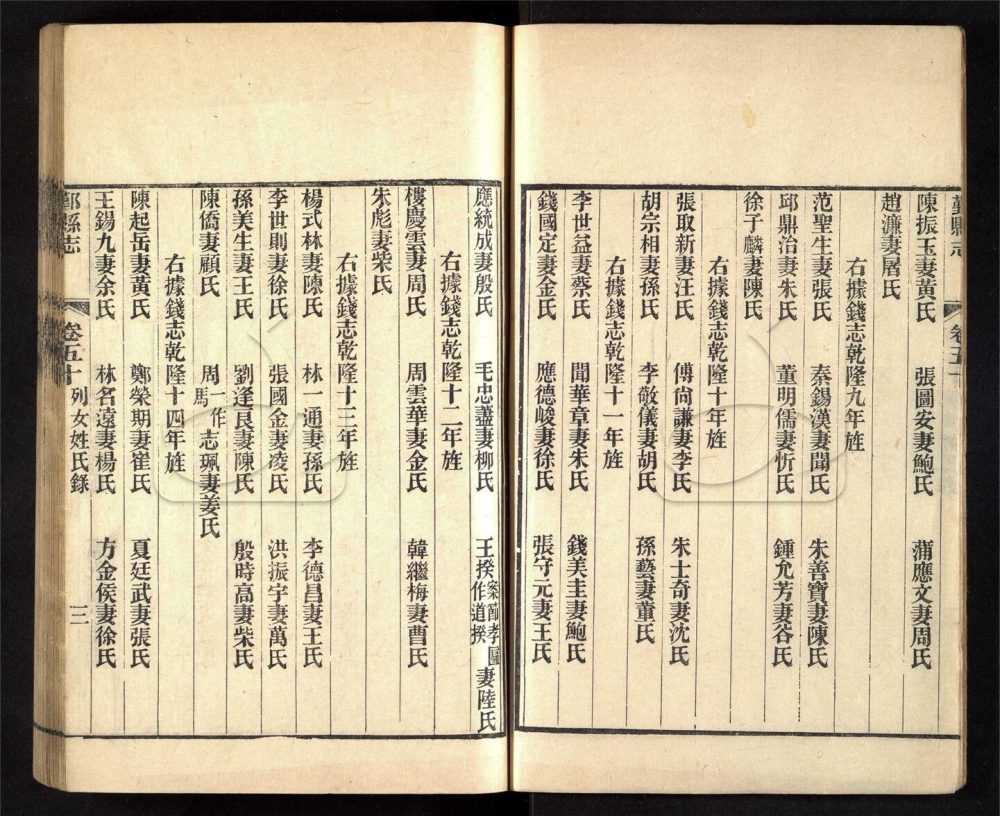 鄞縣志
卷五十
陳振玉妻黃氏 張圖安妻鮑氏 蒲應文妻周氏
趙濂妻屠氏
右據錢志乾隆九年旌
范聖生妻張氏 秦錫漢妻聞氏 朱善寶妻陳氏
邱鼎治妻朱氏 董明儒妻忻氏 鍾允芳妻谷氏
徐子麟妻陳氏
右據錢志乾隆十年旌
張取新妻汪氏 傅尙謙妻李氏 朱士奇妻沈氏
胡宗相妻孫氏 李敬儀妻胡氏 孫藝妻董氏
右據錢志乾隆十一年旌
李世益妻蔡氏 聞華章妻朱氏 錢美圭妻鮑氏
錢國定妻金氏 應德峻妻徐氏 張守元妻王氏
應統成妻殷氏 毛忠藎妻柳氏 王揆案節孝圖作道揆妻陸氏
右據錢志乾隆十二年旌
樓慶雲妻周氏 周雲華妻金氏 韓繼梅妻曹氏
朱彪妻柴氏
右據錢志乾隆十三年旌
楊式林妻陳氏 林一通妻孫氏 李德昌妻王氏
李世則妻徐氏 張國金妻凌氏 洪振宇妻萬氏
孫美生妻王氏 劉逢良妻陳氏 殷時高妻柴氏
陳僑妻顧氏 周一作馬志珮妻姜氏
右據錢志乾隆十四年旌
陳起岳妻黃氏 鄭榮期妻崔氏 夏廷武妻張氏
王錫九妻余氏 林名遠妻楊氏 方金侯妻徐氏
鄞縣志 卷五十 列女姓氏錄 三